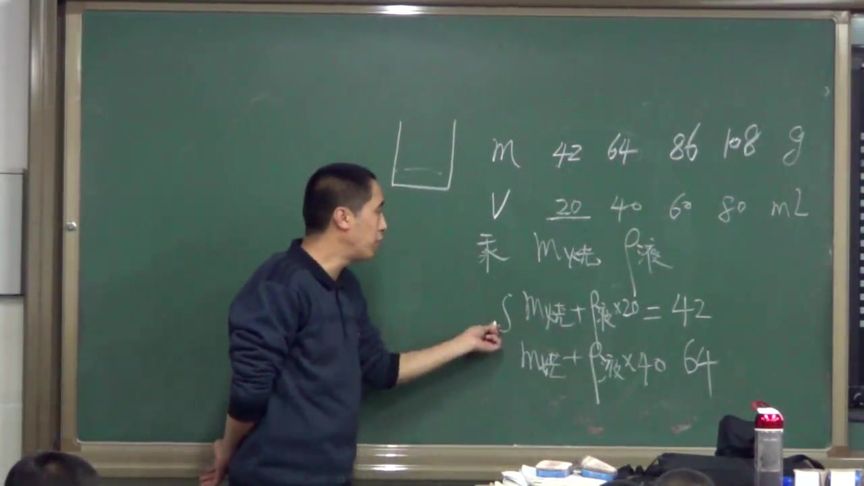 m 42 64 86 108 g
V 20 40 60 80 mL
求 m烧 ρ液
m烧+ρ液×20=42
m烧+ρ液×40 64